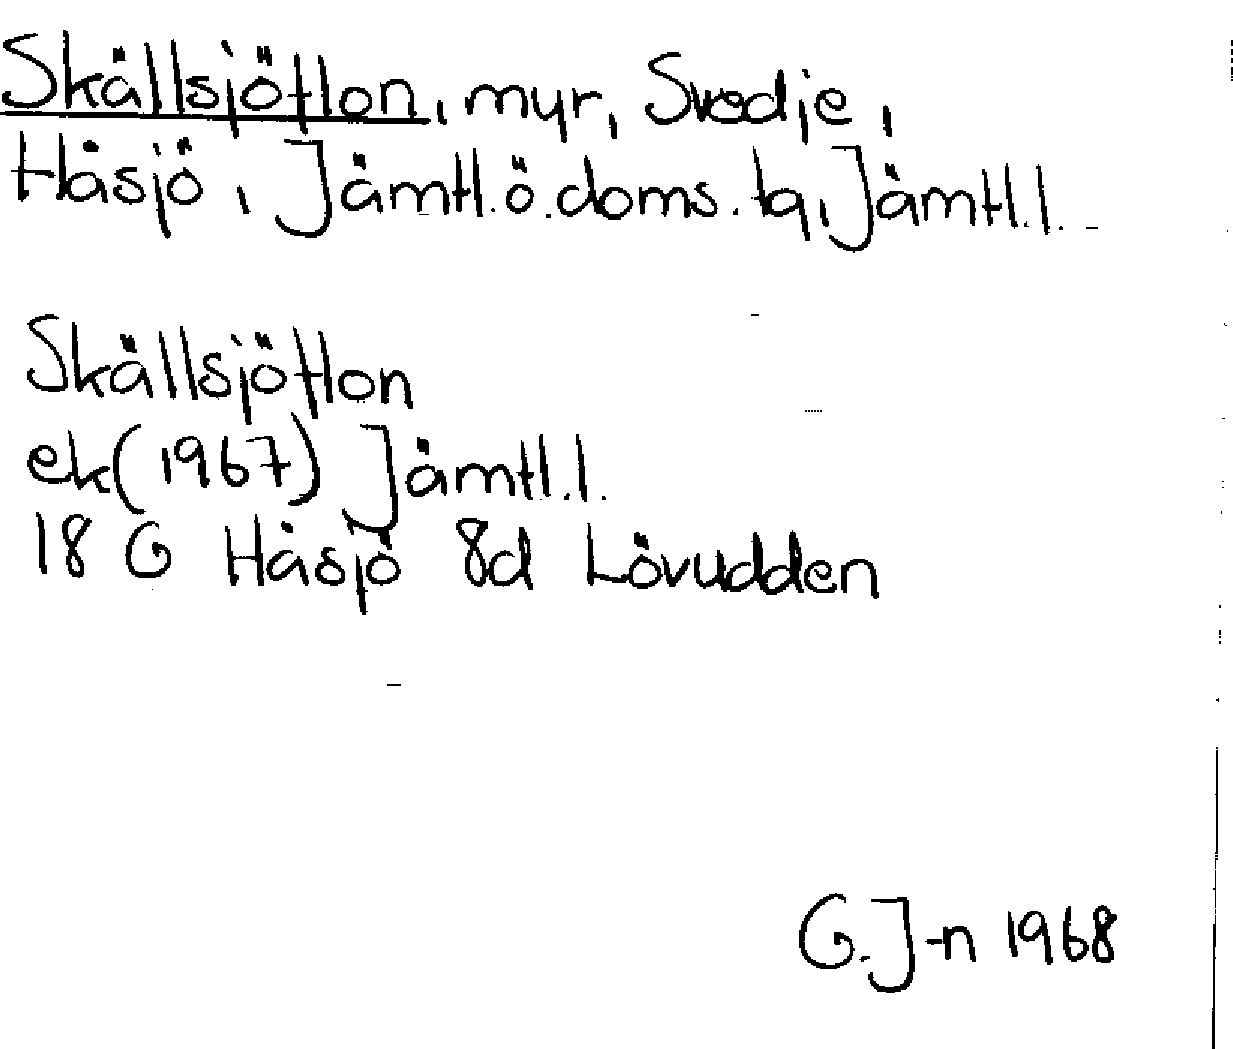 Skällsjöflon, myr, Svedje,
Håsjö, Jämtl.ö.doms.tg, Jämtl.l.
Skällsjöflon
ek(1967) Jämtl.l.
18 G Håsjö 8d Lövudden
G.J-n 1968